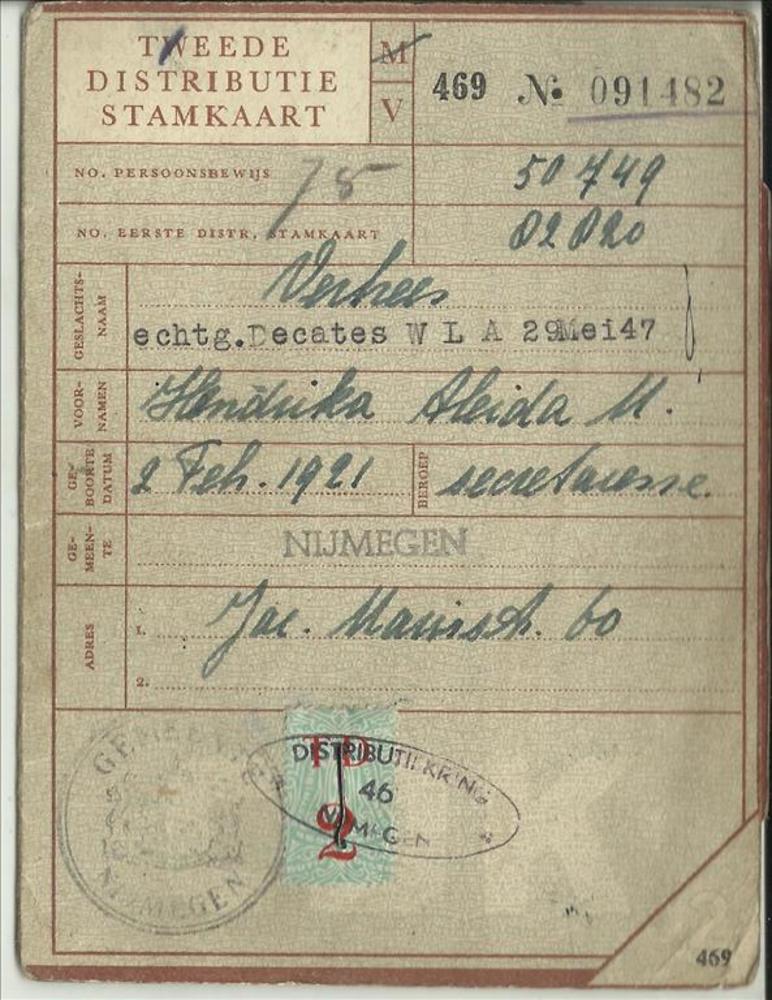 TWEEDE
DISTRIBUTIE
STAMKAART
M
V
469 No. 091482
NO. PERSOONSBEWIJS 75 50749
NO. EERSTE DISTR. STAMKAART
GESLACHTS-
NAAM
Verhees
echtg.Decates W L A 29Mei47
VOOR-
NAMEN
Hendrika Aleida M.
GE-
BOORTE
DATUM
2 Feb. 1921
BEROEP
secretaresse.
GE-
MEEN-
TE
NIJMEGEN
ADRES
1. Jac. 60
2.
GEMEENTE
NIJMEGEN
TD
2
DISTRIBUTIEKRING
46
NIJMEGEN
469